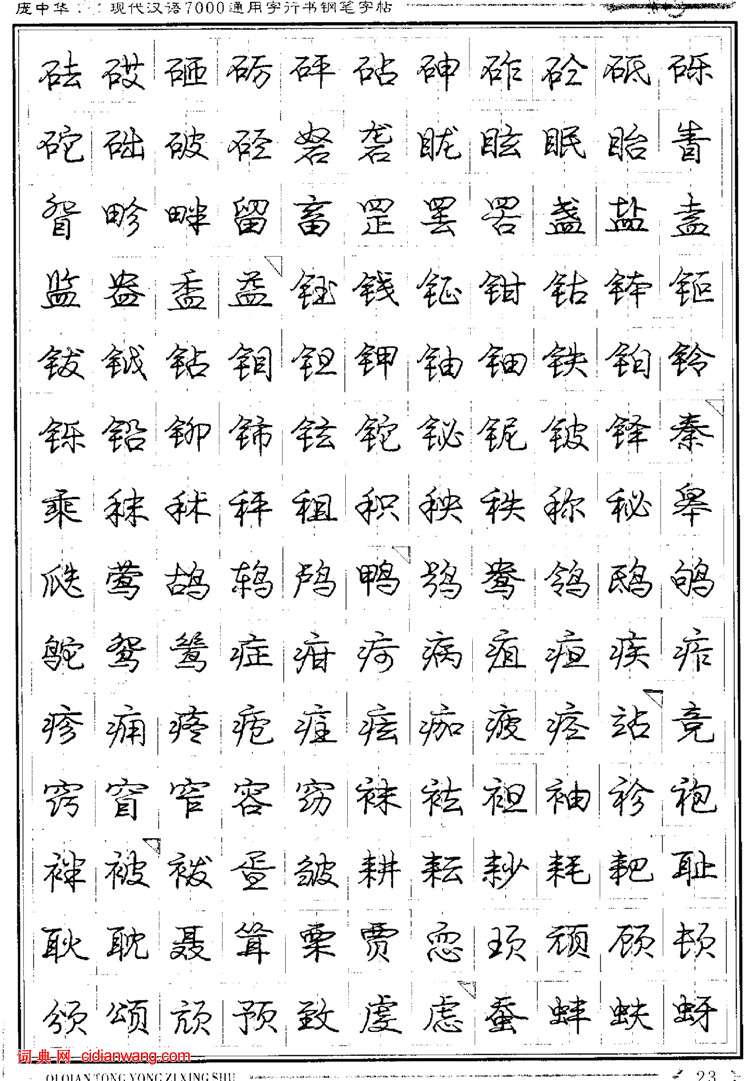 庞中华 现代汉语7000通用字行书钢笔字帖
砝砹砸砺砰砧砷砟砼砥砾
砣础破硁砮砻眬眩眠眙眚
眢畛畔留畜罡罢罟盏盐盍
监盎盉益钰钱钲钳钴钵钷
钹钺钻钼钽钾铀钿铁铂铃
铄铅铆铈铉铊铋铌铍铎秦
乘秣秫秤租积秧秩称秘皋
瓞莺鸪鸫鸬鸭鸮鸯鸰鸱鸲
鸵鸳鸶症疳疴病疽疸疾痄
疹痈疼疱疰痃痂疲痉站竞
窍窅窄容窈袜袪袒袖袗袍
袢被袯疍皱耕耘耖耗耙耻
耿耽聂栗贾顼顽顾顿
颁颂颃预致虔虑蚕蚌蚨蚜
词典网 cidianwang.com
QI QIAN TONG YONG ZI XING SHU 23